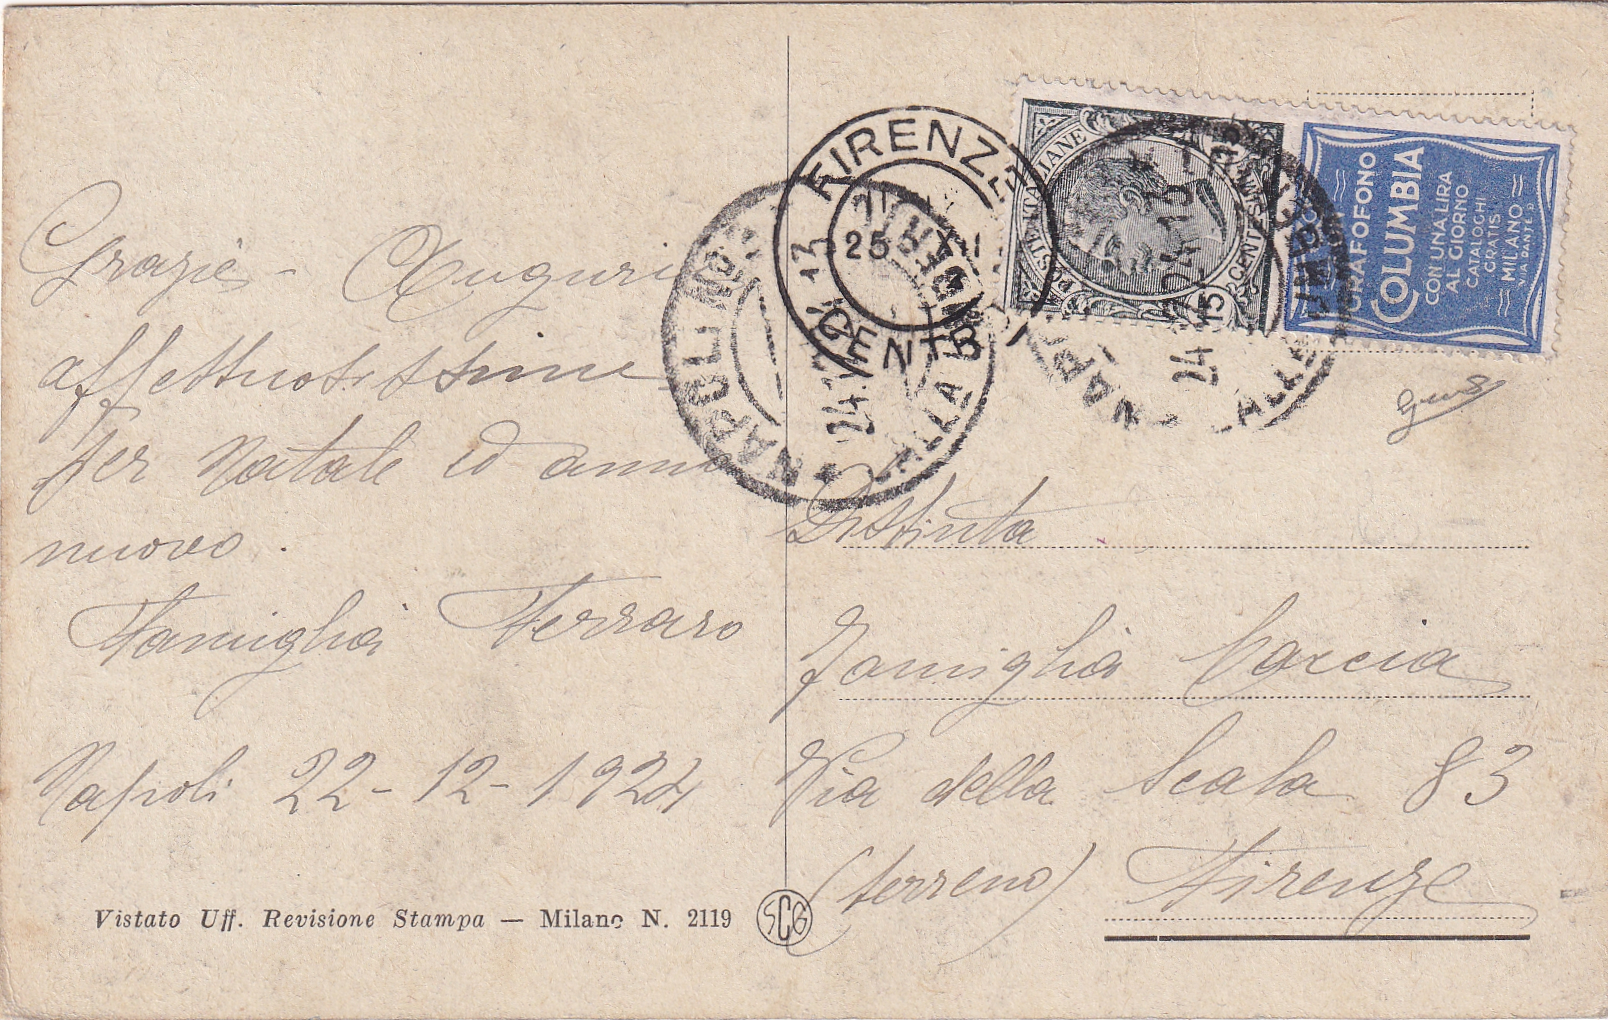 Grazie - Auguri
affettuosissimi
per Natale ed anno
nuovo.
Famiglia Ferraro
Napoli 22-12-1924
Vistato Uff. Revisione Stampa — Milano N. 2119
SCG
FIRENZE
25 XII
CENTRO
NAPOLI
24
POSTE ITALIANE
15 CENTESIMI
GRAFOFONO
COLUMBIA
CON UNA LIRA
AL GIORNO
CATALOGHI
GRATIS
MILANO
VIA DANTE 9
NAPOLI
24
Distinta
Famiglia Carcia
Via della Scala 83
(terreno) Firenze